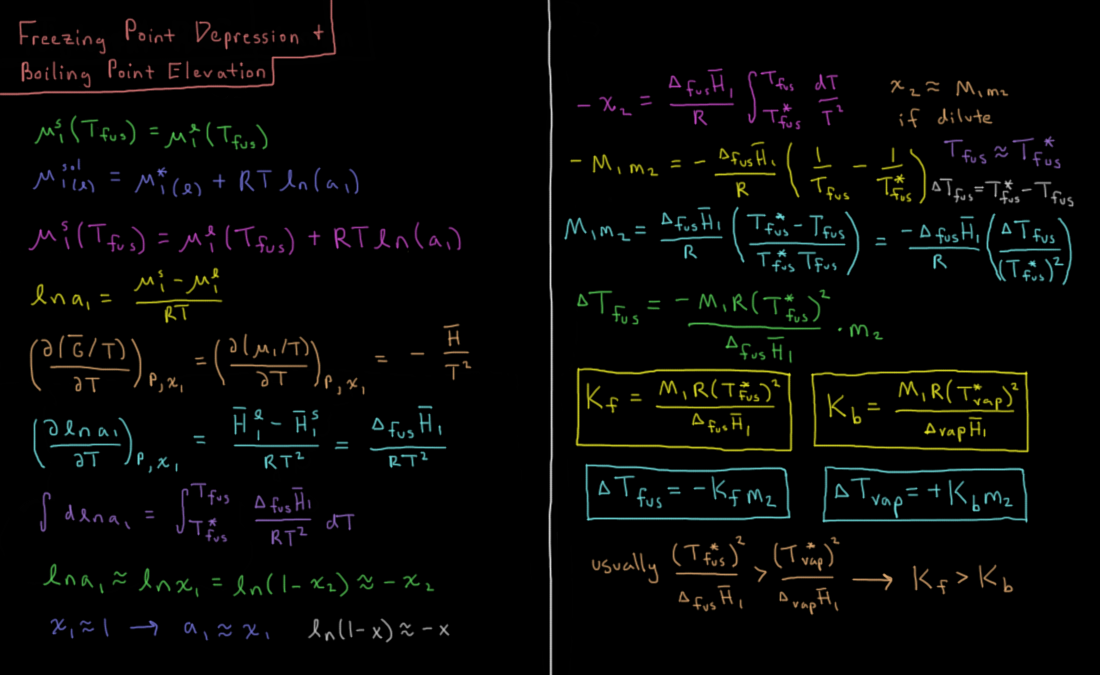 Freezing Point Depression +
Boiling Point Elevation
μ₁ˢ(T_fus) = μ₁ˡ(T_fus)
μ₁₍ₗ₎ˢᵒˡ = μ₁*₍ₗ₎ + RT ln(a₁)
μ₁ˢ(T_fus) = μ₁ˡ(T_fus) + RT ln(a₁)
ln a₁ = (μ₁ˢ - μ₁ˡ)/RT
(∂(G̅/T)/∂T)_P,x₁ = (∂(μ₁/T)/∂T)_P,x₁ = - H̅/T²
(∂ln a₁/∂T)_P,x₁ = (H̅₁ˡ - H̅₁ˢ)/RT² = Δ_fus H̅₁/RT²
∫ d ln a₁ = ∫_{T*_fus}^{T_fus} Δ_fus H̅₁/RT² dT
ln a₁ ≈ ln x₁ = ln(1-x₂) ≈ -x₂
x₁ ≈ 1 → a₁ ≈ x₁ ln(1-x) ≈ -x
-x₂ = Δ_fus H̅₁/R ∫_{T*_fus}^{T_fus} dT/T²
x₂ ≈ M₁m₂
if dilute
-M₁m₂ = - Δ_fus H̅₁/R (1/T_fus - 1/T*_fus)
T_fus ≈ T*_fus
ΔT_fus = T*_fus - T_fus
M₁m₂ = Δ_fus H̅₁/R ((T*_fus - T_fus)/(T*_fus T_fus)) = -Δ_fus H̅₁/R (ΔT_fus/(T*_fus)²)
ΔT_fus = -M₁R(T*_fus)²/Δ_fus H̅₁ · m₂
K_f = M₁R(T*_fus)²/Δ_fus H̅₁
K_b = M₁R(T*_vap)²/Δ_vap H̅₁
ΔT_fus = -K_f m₂
ΔT_vap = +K_b m₂
usually (T*_fus)²/Δ_fus H̅₁ > (T*_vap)²/Δ_vap H̅₁ → K_f > K_b